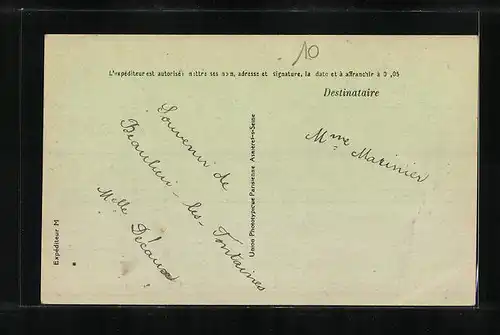 10
L'expéditeur est autorisé à mettre ses nom, adresse et signature, la date et à affranchir à 0,05
Destinataire
Mme Marinier
Souvenir de
Beaulieu-les-Fontaines
Melle Decaux
Union Phototypique Parisienne Asnières-s-Seine
Expéditeur M